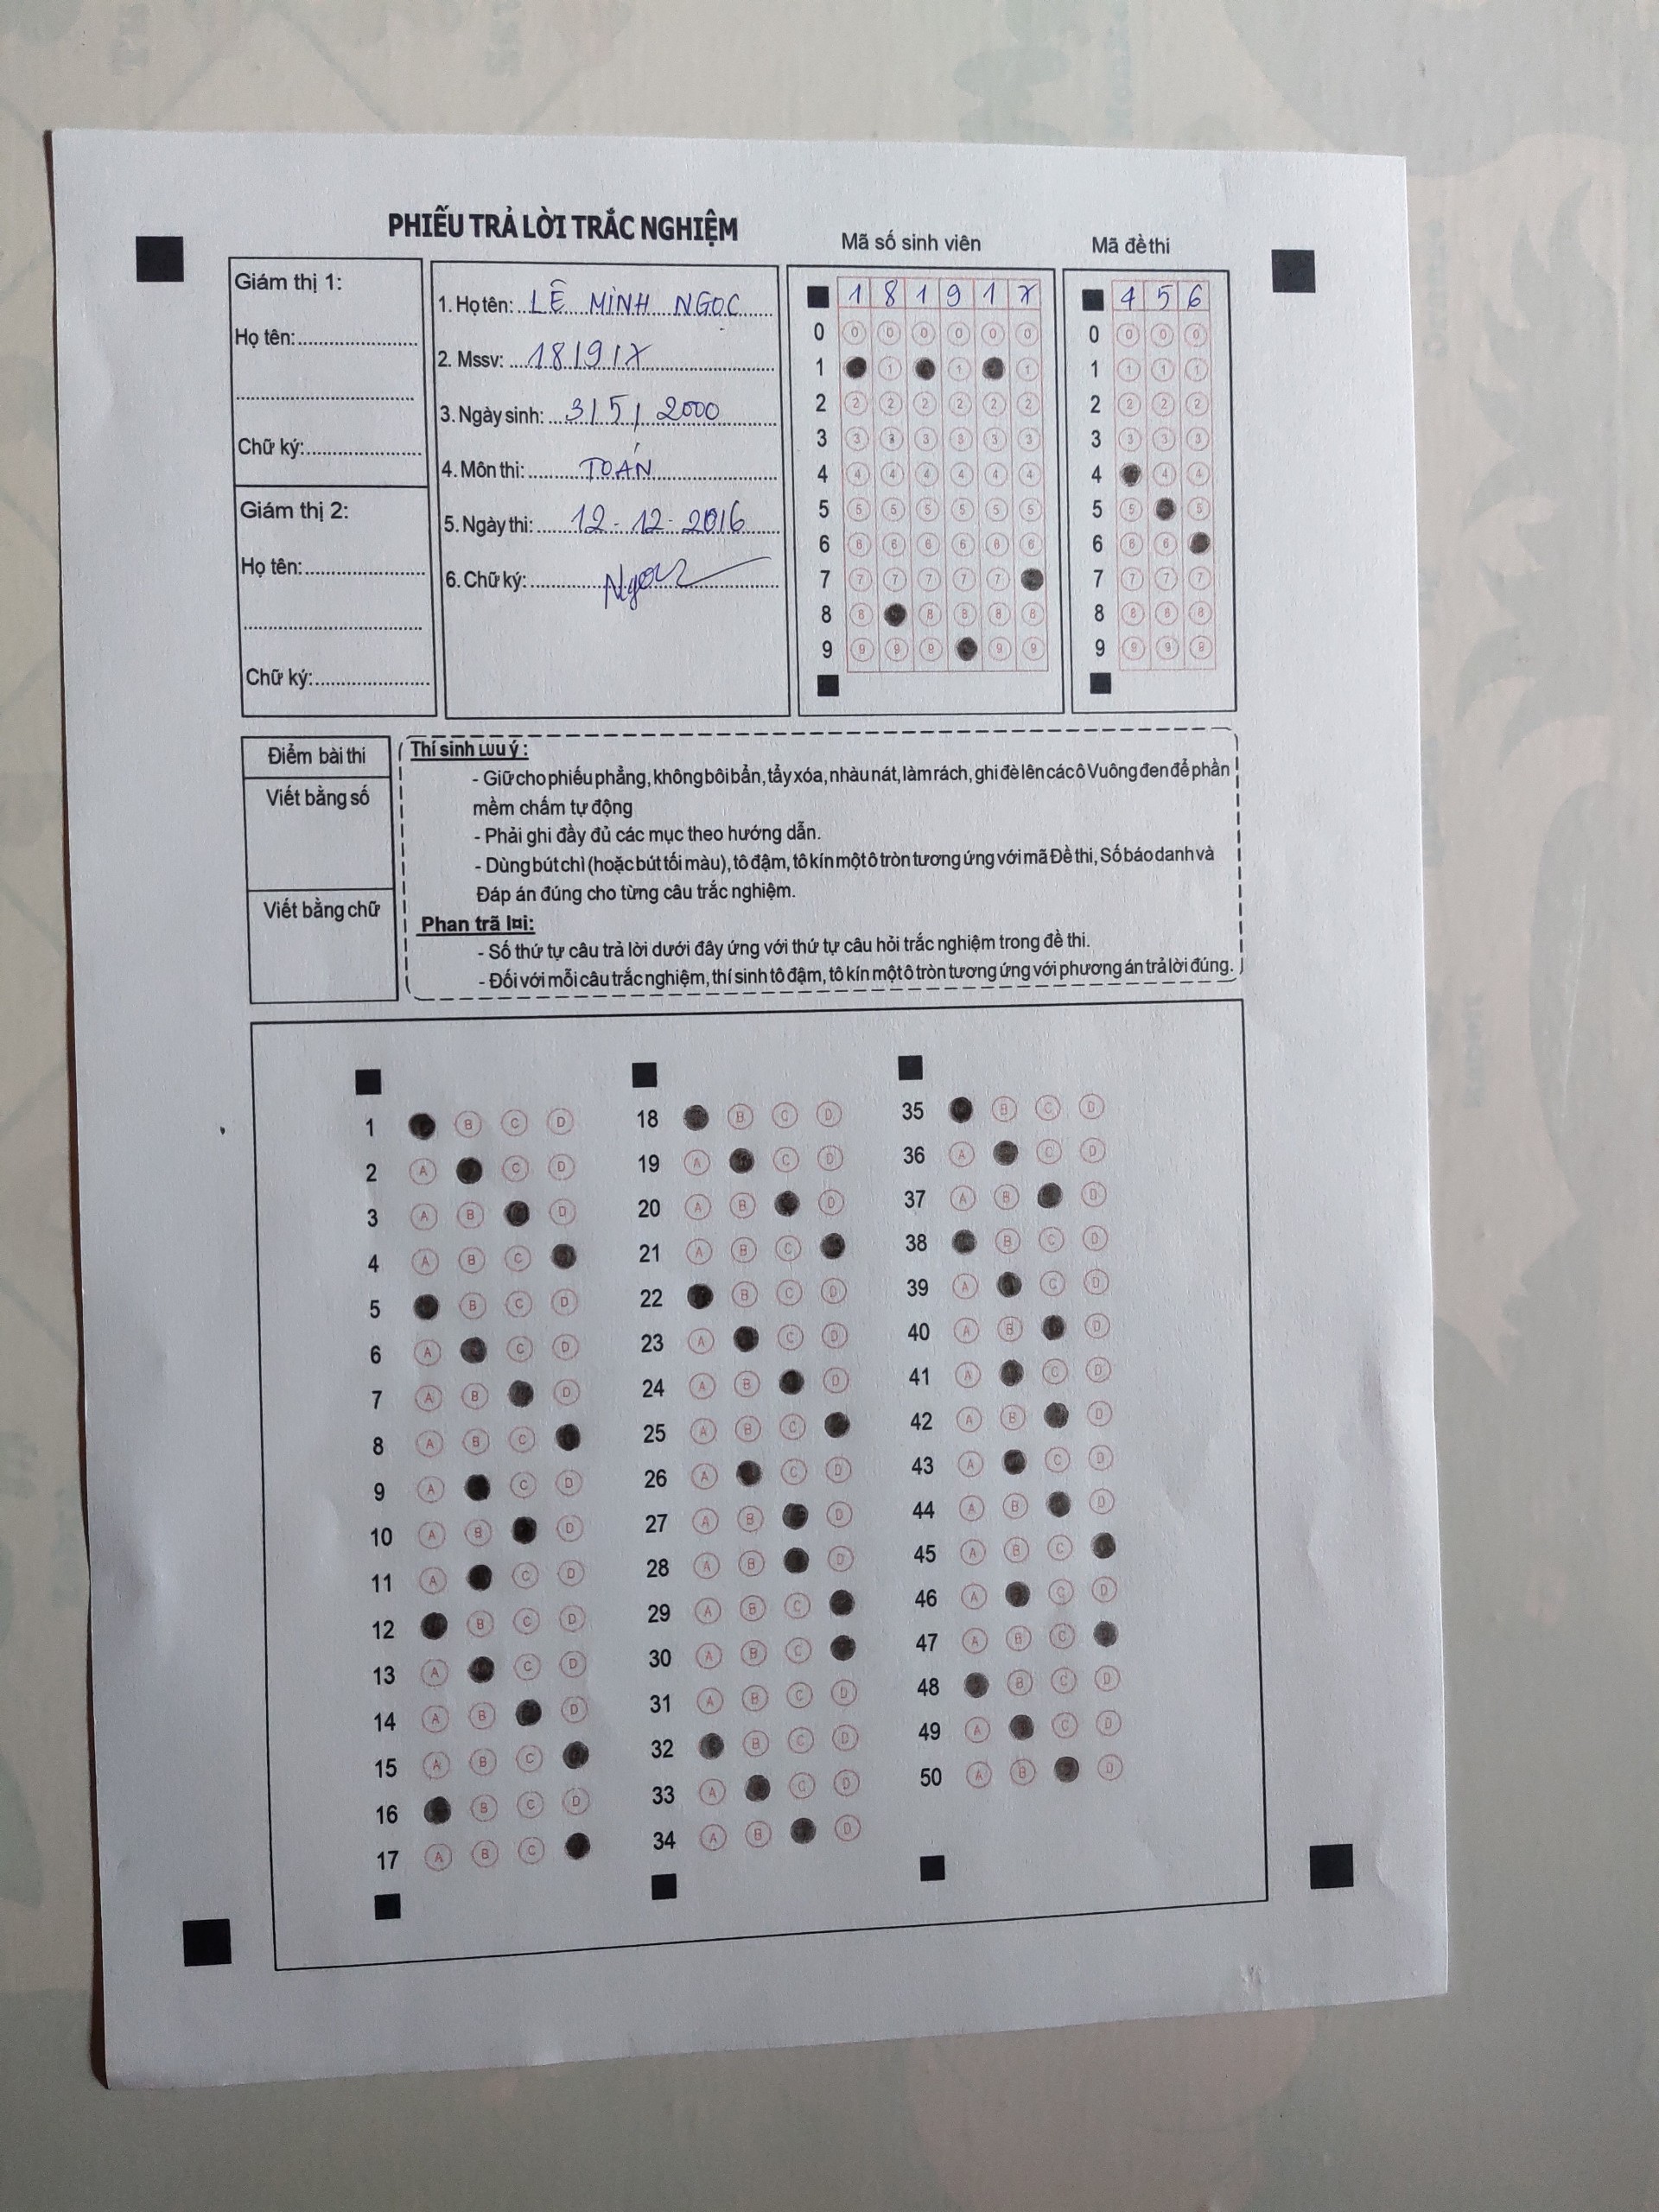 PHIẾU TRẢ LỜI TRẮC NGHIỆM
Mã số sinh viên
Mã đề thi
Giám thị 1:
Họ tên:
Chữ ký:
Giám thị 2:
Họ tên:
Chữ ký:
1. Họ tên: LÊ MINH NGỌC
2. Mssv: 181917
3. Ngày sinh: 3/5/2000
4. Môn thi: TOÁN
5. Ngày thi: 12-12-2016
6. Chữ ký: Ngọc
1 8 1 9 1 7
0 0 0 0 0 0 0
1 1 1 1
2 2 2 2 2 2 2
3 3 3 3 3 3 3
4 4 4 4 4 4 4
5 5 5 5 5 5 5
6 6 6 6 6 6 6
7 7 7 7 7 7
8 8 8 8 8 8
9 9 9 9 9 9
4 5 6
0 0 0 0
1 1 1 1
2 2 2 2
3 3 3 3
4 4 4
5 5 5
6 6 6
7 7 7 7
8 8 8 8
9 9 9 9
Điểm bài thi
Viết bằng số
Viết bằng chữ
Thí sinh Lưu ý:
- Giữ cho phiếu phẳng, không bôi bẩn, tẩy xóa, nhàu nát, làm rách, ghi đè lên các ô Vuông đen để phần
mềm chấm tự động
- Phải ghi đầy đủ các mục theo hướng dẫn.
- Dùng bút chì (hoặc bút tối màu), tô đậm, tô kín một ô tròn tương ứng với mã Đề thi, Số báo danh và
Đáp án đúng cho từng câu trắc nghiệm.
Phan trã lời:
- Số thứ tự câu trả lời dưới đây ứng với thứ tự câu hỏi trắc nghiệm trong đề thi.
- Đối với mỗi câu trắc nghiệm, thí sinh tô đậm, tô kín một ô tròn tương ứng với phương án trả lời đúng.
1 B C D
2 A C D
3 A B D
4 A B C
5 B C D
6 A C D
7 A B D
8 A B C
9 A C D
10 A B D
11 A C D
12 B C D
13 A C D
14 A B D
15 A B C
16 B C D
17 A B C
18 B C D
19 A C D
20 A B D
21 A B C
22 B C D
23 A C D
24 A B D
25 A B C
26 A C D
27 A B D
28 A B D
29 A B C
30 A B C
31 A B C D
32 B C D
33 A C D
34 A B D
35 B C D
36 A C D
37 A B D
38 B C D
39 A C D
40 A B D
41 A C D
42 A B D
43 A C D
44 A B D
45 A B C
46 A C D
47 A B C
48 B C D
49 A C D
50 A B D